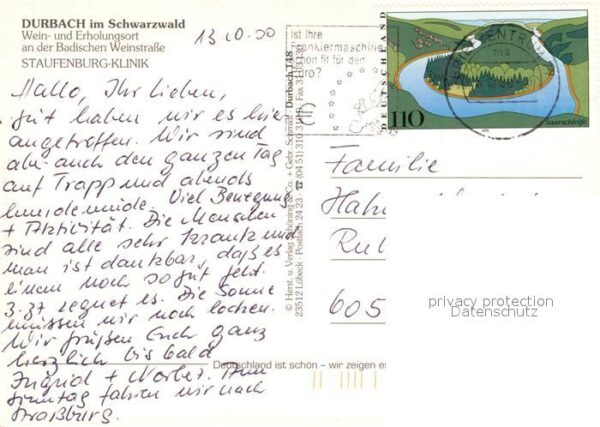 DURBACH im Schwarzwald
Wein- und Erholungsort
an der Badischen Weinstraße
STAUFENBURG-KLINIK
13.10.00
Hallo, Ihr Lieben,
gut haben wir es hier
angetroffen. Wir sind
aber auch den ganzen Tag
auf Trapp und abends
hundemüde. Viel Bewegung
+ Aktivität. Die Menschen
sind alle sehr krank und
man ist dankbar, daß es
einem noch so gut geht.
z.Zt regnet es. Die Sonne
müssen wir noch locken.
Wir grüßen Euch ganz
herzlich bis bald
Ingrid + Norbert. Am
Sonntag fahren wir nach
Straßburg.
© Herst. u. Verlag Schöning & Co. + Gebr. Schmidt
23512 Lübeck · Postfach 24 23
Durbach 148
Ist Ihre
Frankiermaschine
schon fit für den
Euro?
DEUTSCHLAND
110
Saarschleife
Familie
605
privacy protection
Datenschutz
Deutschland ist schön – wir zeigen es